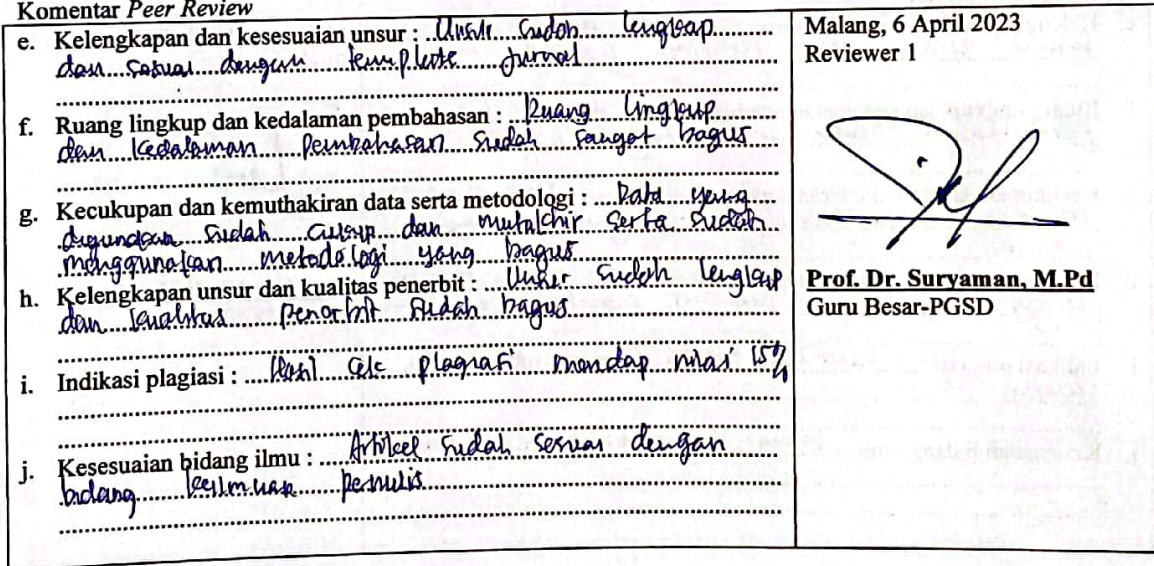 Komentar Peer Review
e. Kelengkapan dan kesesuaian unsur : Unsur sudah lengkap
dan sesuai dengan template jurnal
f. Ruang lingkup dan kedalaman pembahasan : Ruang lingkup
dan kedalaman pembahasan sudah sangat bagus
g. Kecukupan dan kemuthakiran data serta metodologi : Data yang
digunakan sudah cukup dan mutakhir serta sudah
menggunakan metodologi yang bagus
h. Kelengkapan unsur dan kualitas penerbit : Unsur sudah lengkap
dan kualitas penerbit sudah bagus
i. Indikasi plagiasi : Hasil cek plagiasi mendap nilai 15%
j. Kesesuaian bidang ilmu : Artikel sudah sesuai dengan
bidang keilmuan penulis
Malang, 6 April 2023
Reviewer 1
Prof. Dr. Suryaman, M.Pd
Guru Besar-PGSD